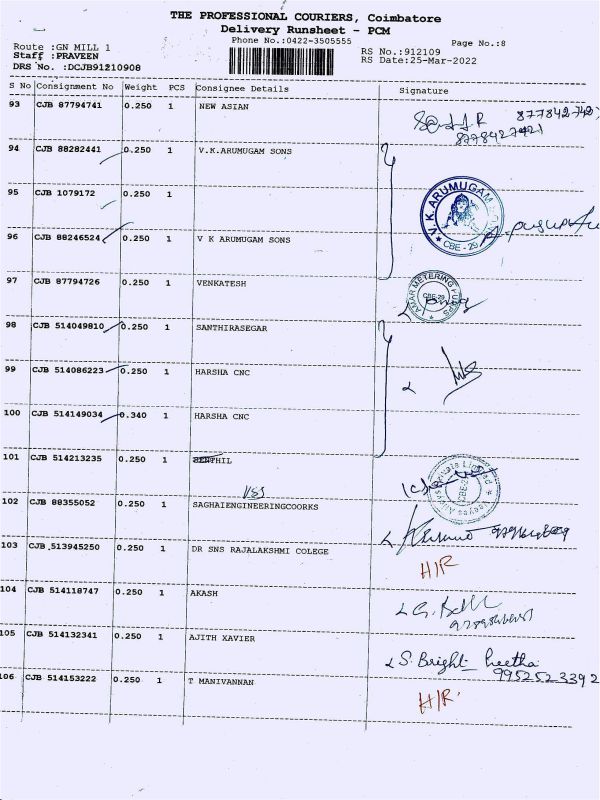 THE PROFESSIONAL COURIERS, Coimbatore
Delivery Runsheet - PCM
Phone No.:0422-3505555
Page No.:8
Route :GN MILL 1
RS No.:912109
Staff :PRAVEEN
RS Date:25-Mar-2022
DRS No. :DCJB91210908
S No Consignment No Weight PCS Consignee Details Signature
93 CJB 87794741 0.250 1 NEW ASIAN
94 CJB 88282441 0.250 1 V.K.ARUMUGAM SONS
95 CJB 1079172 0.250 1
V.K.ARUMUGAM
CBE - 29
96 CJB 88246524 0.250 1 V K ARUMUGAM SONS
97 CJB 87794726 0.250 1 VENKATESH
METERING PUMPS
98 CJB 514049810 0.250 1 SANTHIRASEGAR
99 CJB 514086223 0.250 1 HARSHA CNC
100 CJB 514149034 0.340 1 HARSHA CNC
101 CJB 514213235 0.250 1 SENTHIL
Private Limited
102 CJB 88355052 0.250 1 SAGHAIENGINEERINGCOORKS
103 CJB ,513945250 0.250 1 DR SNS RAJALAKSHMI COLEGE H/R
104 CJB 514118747 0.250 1 AKASH
105 CJB 514132341 0.250 1 AJITH XAVIER
S. Bright
9952523392
106 CJB 514153222 0.250 1 T MANIVANNAN H/R